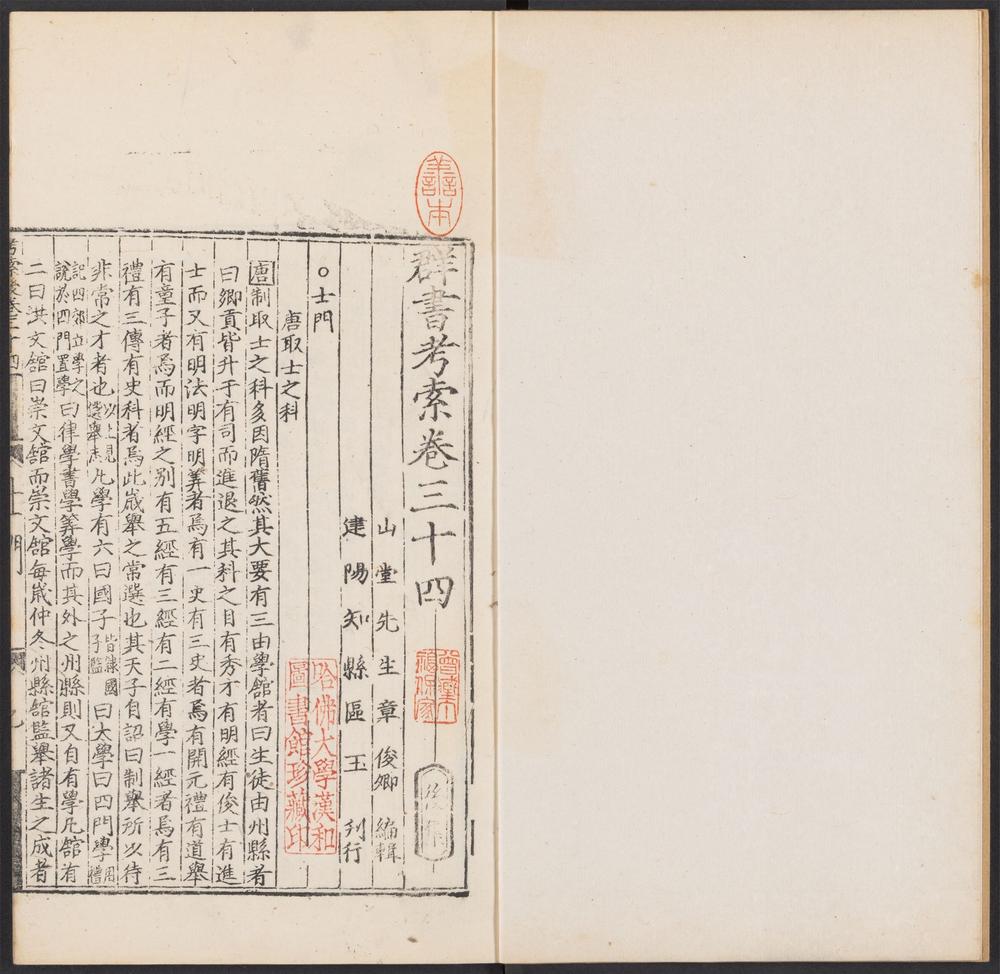 善本
群書考索卷三十四
後集
山堂先生章俊卿編輯
建陽知縣區玉刋行
哈佛大學漢和圖書館珍藏印
○士門
唐取士之科
唐制取士之科多因隋舊然其大要有三由學舘者曰生徒由州縣者
曰鄉貢皆升于有司而進退之其科之目有秀才有明經有俊士有進
士而又有明法明字明筭者焉有一史有三史者焉有開元禮有道舉
有童子者焉而明經之别有五經有三經有二經有學一經者焉有三
禮有三傳有史科者焉此歲舉之常選也其天子自詔曰制舉所以待
非常之才者也以上見選舉志凡學有六曰國子皆隸國子監曰太學曰四門學禮
記四郊立學之說於四門置學曰律學書學筭學而其外之州縣則又自有學凡舘有
二曰洪文舘曰崇文舘而崇文舘每歲仲冬州縣舘監舉諸生之成者
考索後卷三十四
士門